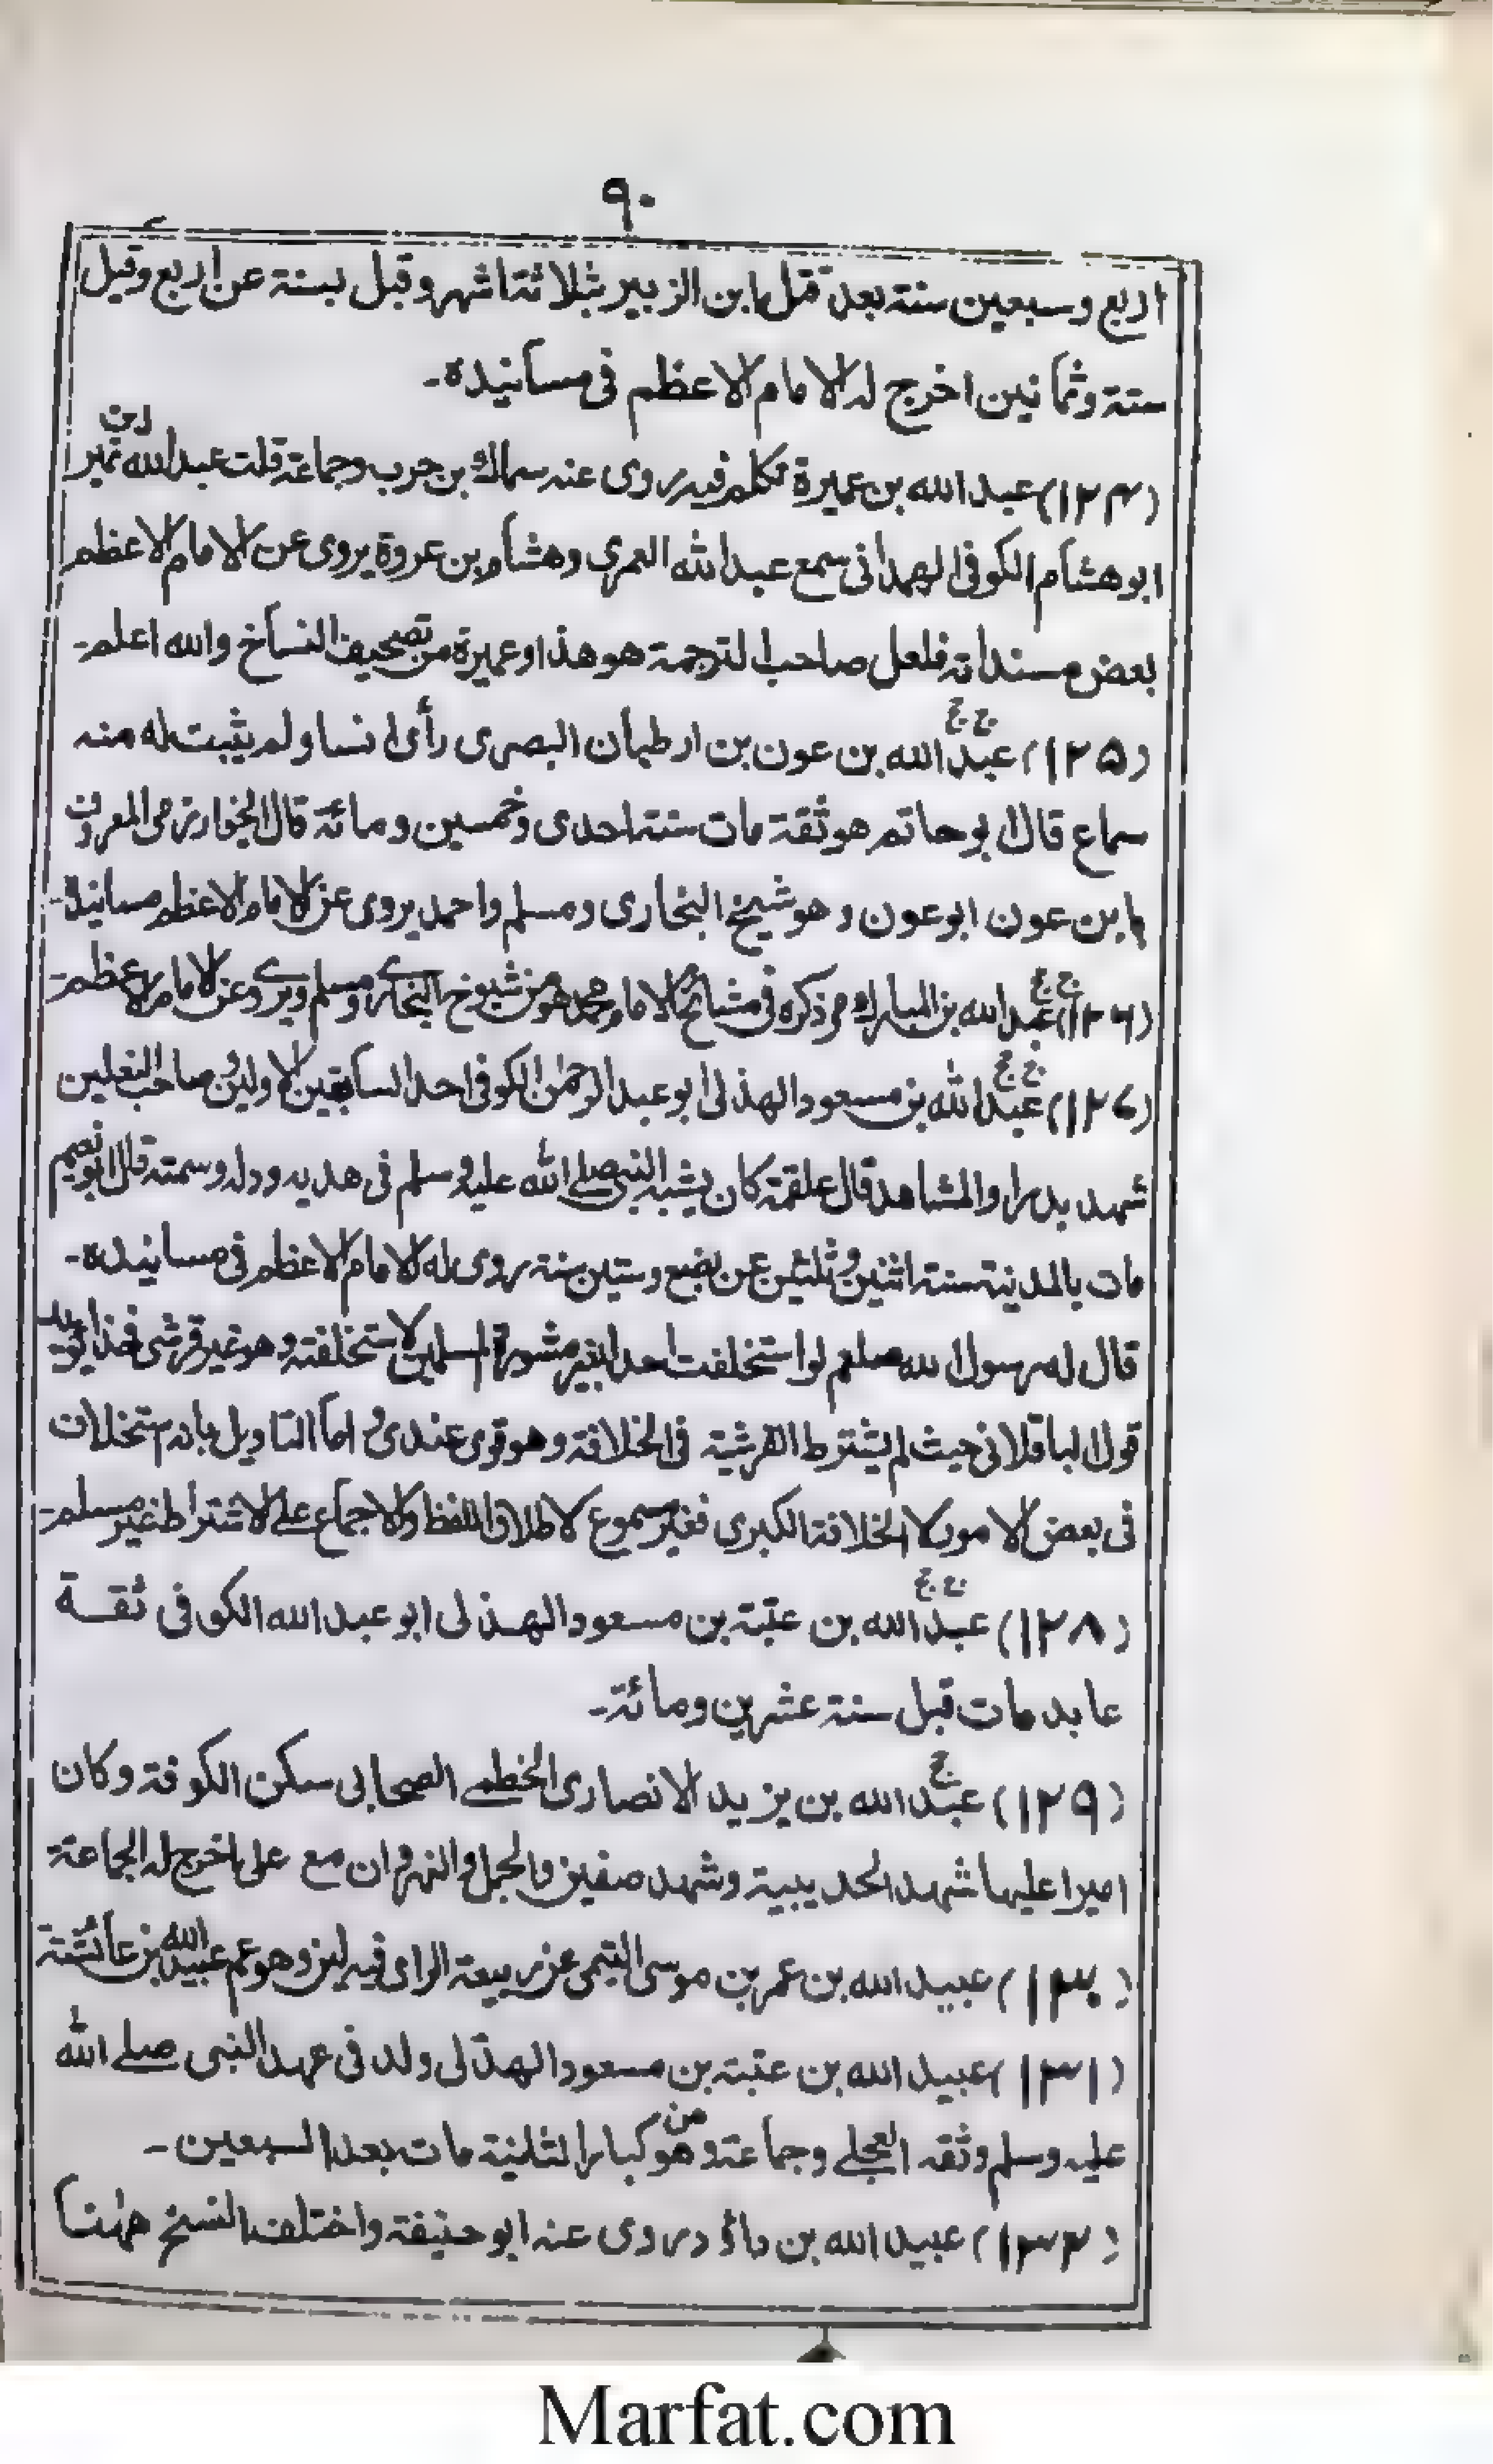 ٩٠
اربع وسبعين سنة بعد قتل ابن الزبير بثلاثة اشهر وقبل بسنة عن اربع وقيل
ستة وثمانين اخرج له الامام الاعظم فى مسانيده۔
(١٢٤) عبد الله بن عميرة تكلم فيه روى عنه سماك بن حرب وجماعة قلت عبد الله ابن نمير
ابو هشام الكوفى الهمدانى سمع عبد الله العمرى وهشام بن عروة يروى عن الامام الاعظم
بعض مسنداته فلعل صاحب الترجمة هو هذا او عميرة من تصحيف النساخ والله اعلم۔
(١٢٥) عبد الله بن عون بن ارطبان البصرى رأى انسا ولم يثبت له منه
سماع قال ابو حاتم هو ثقة مات سنة احدى وخمسين ومائة قال الخوارزمى المعروف
بابن عون ابو عون وهو شيخ البخارى ومسلم واحمد يروى عن الامام الاعظم مسانيدة۔
(١٢٦) عبد الله بن المبارك مر ذكره فى مشائخ الامام محمد هو من شيوخ البخارى ومسلم ويروى عن الامام الاعظم۔
(١٢٧) عبد الله بن مسعود الهذلى ابو عبد الرحمن الكوفى احد السابقين الاولين وصاحب النعلين
شهد بدرا والمشاهد قال علقمة كان يشبه النبى صلے الله عليه وسلم فى هديه ودله وسمته قال ابو نعيم
مات بالمدينة سنة اثنين وثلثين عن بضع وستين سنة روى له الامام الاعظم فى مسانيده۔
قال له رسول الله صلعم لو استخلفت احدا بغير مشورة المسلمين لاستخلفته وهو غير قرشى فهذا يؤيد
قول الباقلانى حيث لم يشترط القرشية فى الخلافة وهو قوى عندى واما التاويل بانه استخلاف
فى بعض الامور لا الخلافة الكبرى فغير مسموع لاطلاق اللفظ والاجماع على الاشتراط غير مسلم۔
(١٢٨) عبد الله بن عتبة بن مسعود الهذلى ابو عبد الله الكوفى ثقة
عابد مات قبل سنة عشرين ومائة۔
(١٢٩) عبد الله بن يزيد الانصارى الخطمے الصحابى سكن الكوفة وكان
اميرا عليها شهد الحديبية وشهد صفين والجمل والنهروان مع على اخرج له الجماعة
(١٣٠) عبيد الله بن عمر بن موسى التيمى عن ربيعة الراى فيه لين وهو عم عبيد الله بن عائشة
(١٣١) عبيد الله بن عتبة بن مسعود الهذلى ولد فى عهد النبى صلے الله
عليه وسلم وثقه العجلے وجماعة وهو من كبار الثانية مات بعد السبعين۔
(١٣٢) عبيد الله بن داؤد روى عنه ابو حنيفة واختلف النسخ ههنا
Marfat.com